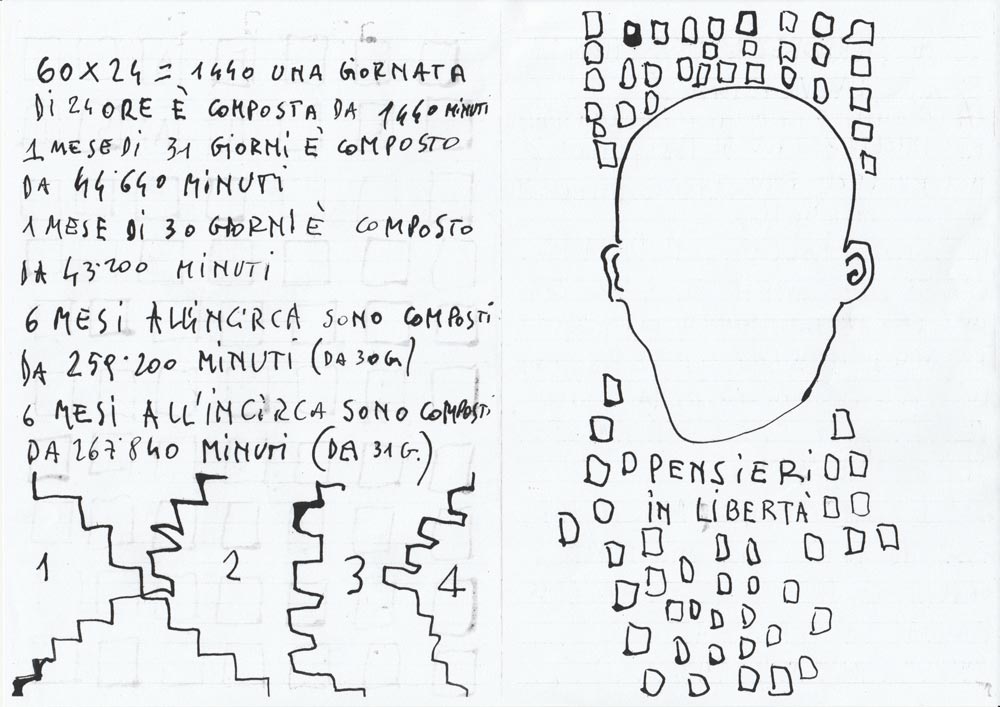 60×24 = 1440 UNA GIORNATA
DI 24 ORE È COMPOSTA DA 1440 MINUTI
1 MESE DI 31 GIORNI È COMPOSTO
DA 44˙640 MINUTI
1 MESE DI 30 GIORNI È COMPOSTO
DA 43˙200 MINUTI
6 MESI ALL'INCIRCA SONO COMPOSTI
DA 259˙200 MINUTI (DA 30G.)
6 MESI ALL'INCIRCA SONO COMPOSTI
DA 267˙840 MINUTI (DEI 31G.)
1 2 3 4
PENSIERI
IN LIBERTÀ